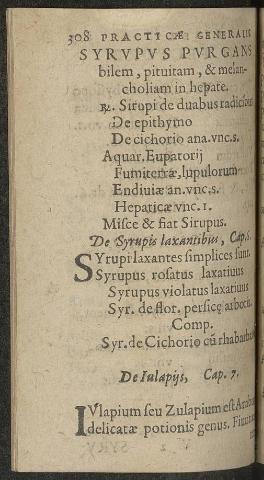 308 PRACTICÆ GENERALIS
SYRVPVS PVRGANS
bilem, pituitam, & melan-
choliam in hepate.
℞. Sirupi de duabus radicibus
De epithymo
De cichorio ana.vnc.s.
Aquar. Eupatorij
Fumiterræ, lupulorum
Endiuiæ an.vnc.s.
Hepaticæ vnc.1.
Misce & fiat Sirupus.
De Syrupis laxantibus, Cap.6.
SYrupi laxantes simplices sunt
Syrupus rosatus laxatiuus
Syrupus violatus laxatiuus
Syr. de flor. persicę arboru
Comp.
Syr. de Cichorio cū rhabarbar
De Iulapijs, Cap. 7.
IVlapium seu Zulapium est Arabu
delicatæ potionis genus.